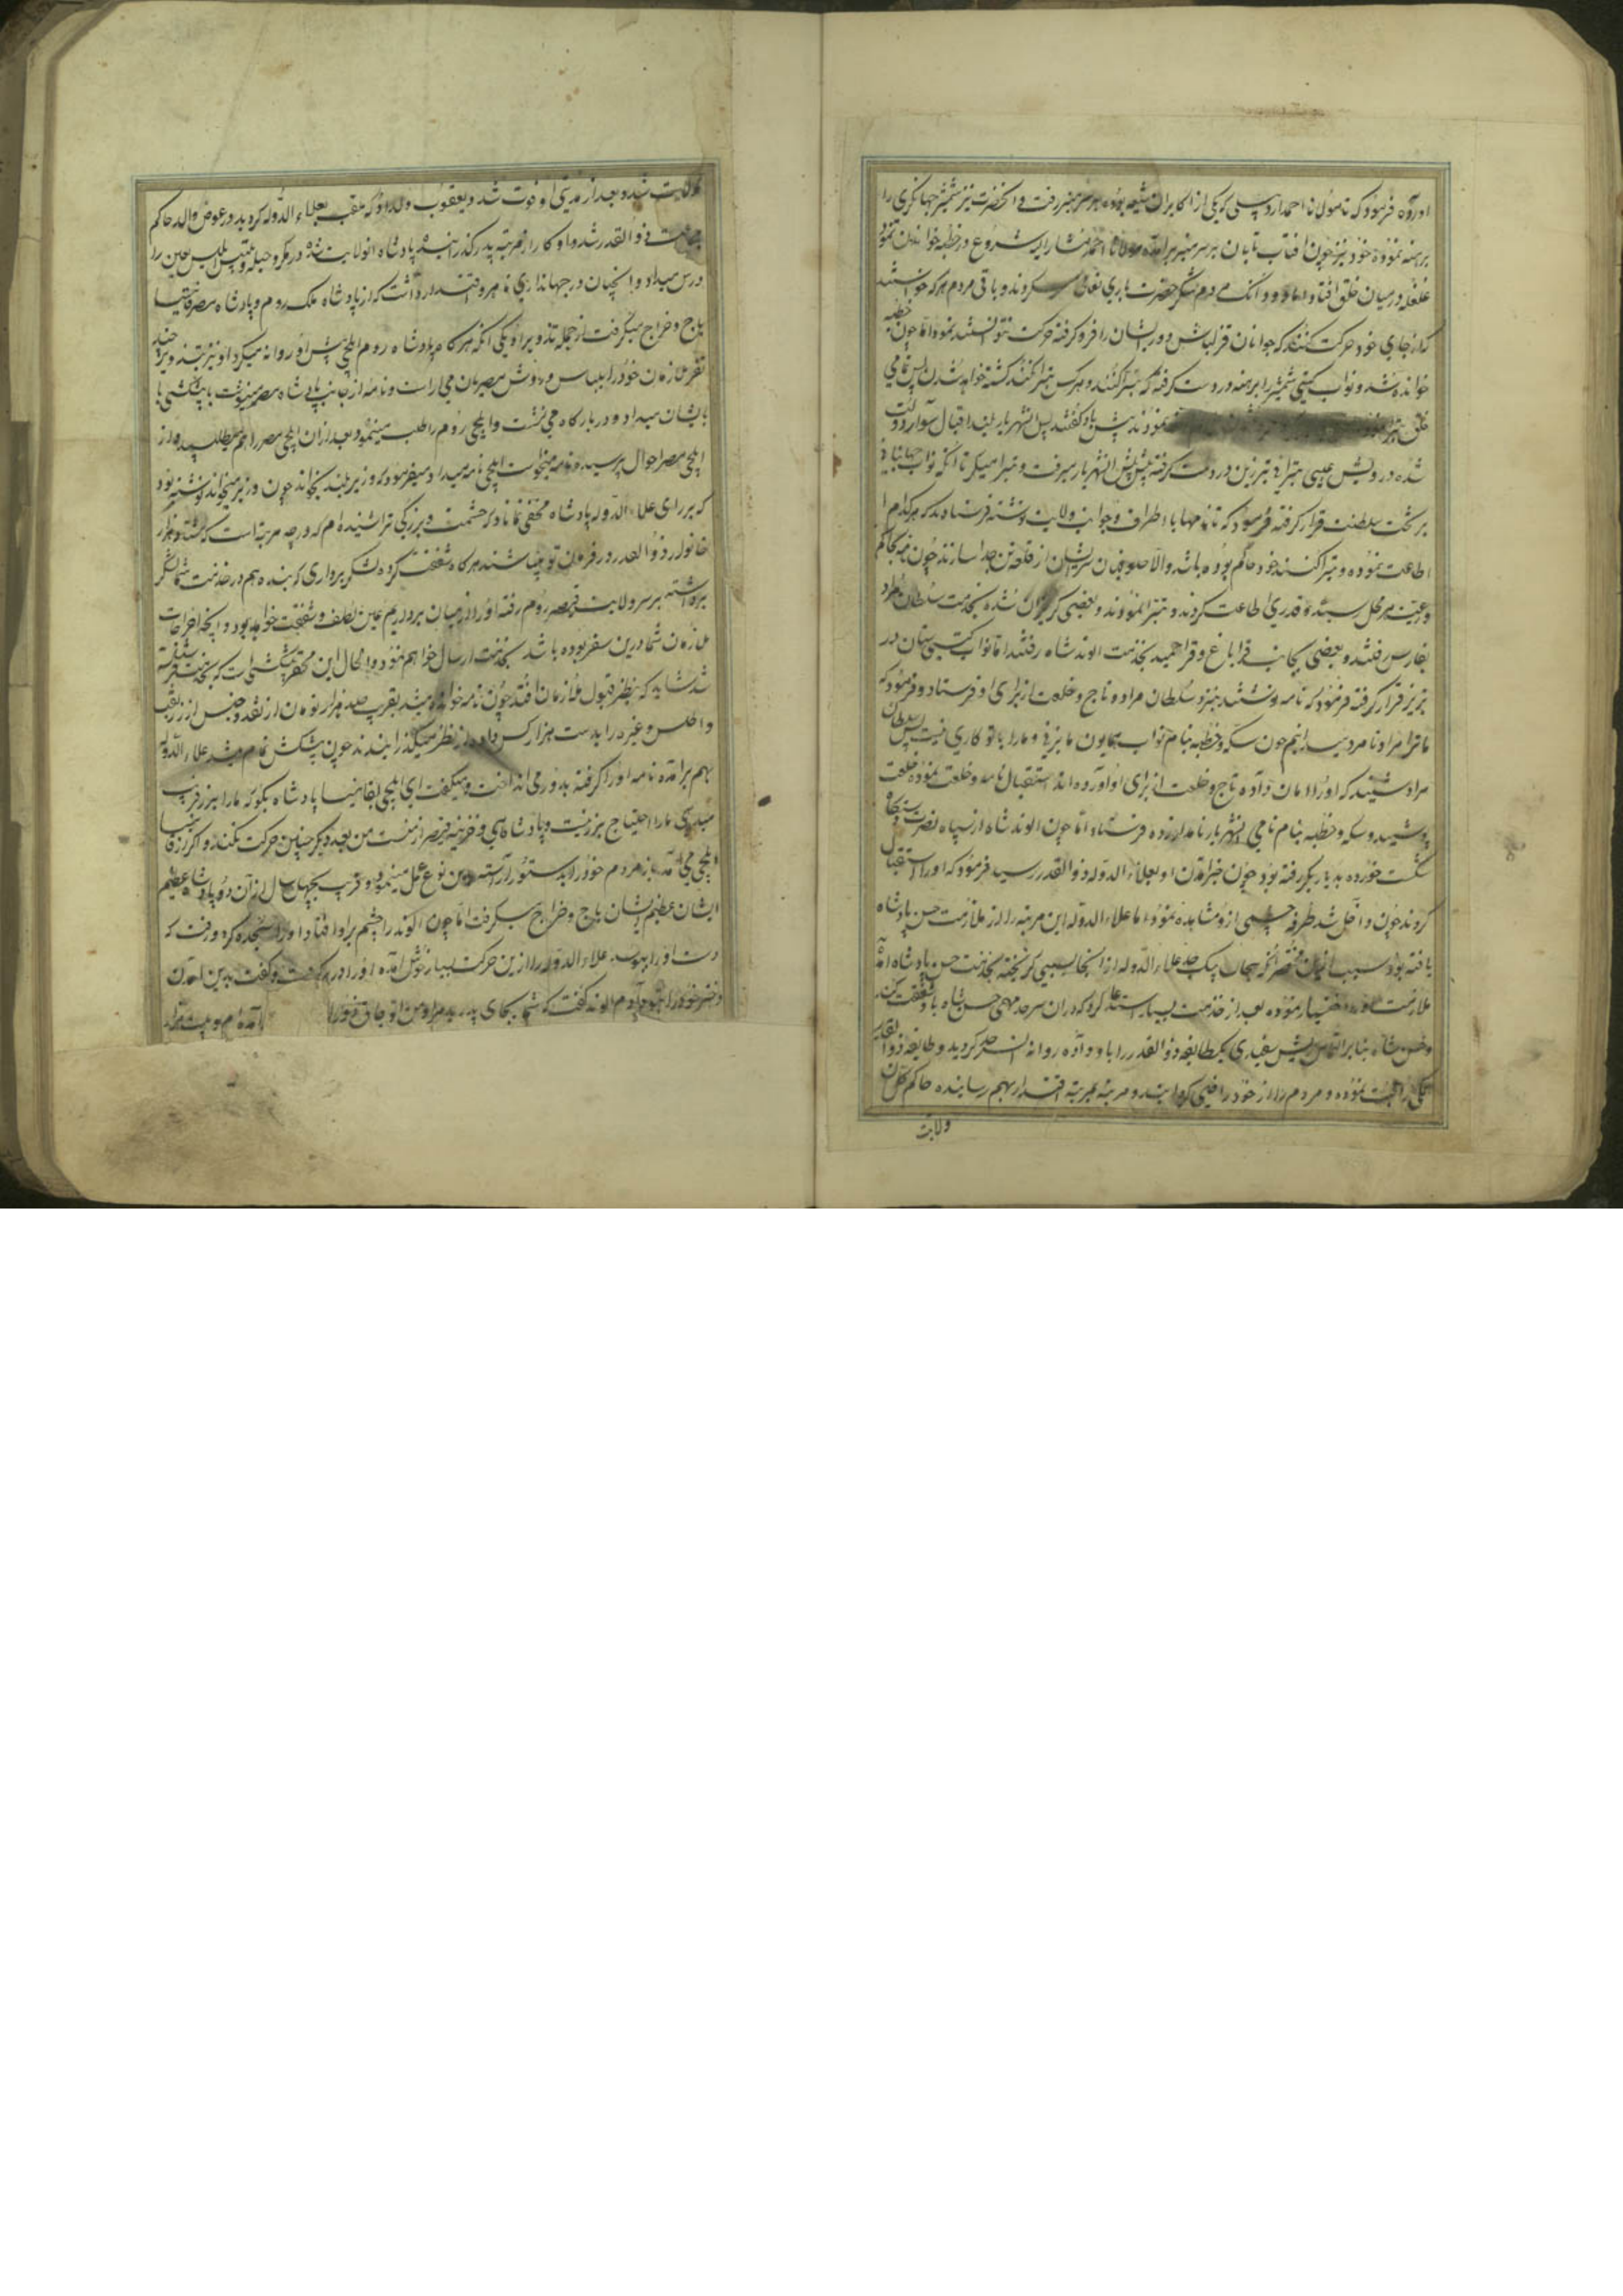 اورده فرمود که تا مولانا احمد اردبیلی که یکی از اکابران شیعه بود بر سر منبر رفت و آنحضرت نیز شمشیر جهانگیری را
برهنه نموده خود نیز چون افتاب تابان بر سر منبر برآمده مولانا احمد شروع در خطبه خواندن نمود
غلغله در میان خلق افتاد اما دو دانگ مردم شکر حضرت باری تعالی میکردند و باقی مردم هر که خواستند
که از جای خود حرکت کنند که جوانان قزلباش دور ایشان را فرو گرفته حرکت نتوانستند نمود اما چون خطبه
خوانده شد و نواب گیتی شمشیر را برهنه در دست گرفته که تبرا کنند و هر کس تبرا نکند کشته خواهد شد پس تمامی
خلق تبرا نمودند بیش باد گفتند پس انشهریار بلند اقبال سوار دولت
شده درویش عیسی تبرائی تبرزین در دست گرفته پیش پیش انشهریار میرفت و تبرا میکرد تا انکه نواب جهانبانی
بر تخت سلطنت قرار گرفته فرمود که تا نامها باطراف و جوانب ولایت نوشته فرستادند که هر کدام
اطاعت نموده و تبرا کنند خود حاکم بوده باشد والا جلوریزان سر ایشان از قلعه تن جدا سازند چون نامه بحکام
و رعیت هر محل رسید و قدری اطاعت کردند و تبرا نمودند و بعضی گریزان شده بخدمت سلطان مراد
بفارس رفتند و بعضی بجانب قراباغ و قراحمید بخدمت الوند شاه رفتند اما نواب گیتی ستان در
تبریز قرار گرفته فرمود که نامه نوشتند بنزد سلطان مراد و تاج و خلعت از برای او فرستاد و فرمود که
ما ترا مراد نامراد میدانیم چون سکه و خطبه بنام نواب همایون ما بزنی و ما را با تو کاری نیست پس سلطان
مراد شنید که او را امان داده تاج و خلعت از برای او آورده اند استقبال نامه و خلعت نموده خلعت
پوشید و سکه و خطبه بنام نامی انشهریار نامدار زده فرستاد اما چون الوند شاه از سپاه نصرت دستگاه
شکست خورده بدیاربکر رفته بود چون خبر آمدن او بعلاء الدوله ذوالقدر رسید فرمود که او را استقبال
کردند چون داخل شد طرفه حشمی از او مشاهده نمود اما علاء الدوله این مرتبه را از ملازمت حسن پادشاه
یافته بود جد علاء الدوله از انجا بسببی گریخته بخدمت حسن پادشاه آمد
ملازمت نموده بعد از خدمت بسیار استدعا کرد که در ان سرحد مهمی حسن شاه باو شفقت کند
و حسن شاه بنابر التماس ریش سفیدی یکطایفه ذوالقدر را باو داده روانه انسرحد گردید و طایفه ذوالقدر
نموده و مردم را از خود راضی گردانید و مرتبه بمرتبه اقتدار بهم رسانیده حاکم کل آن
ولایت
ولایت شد و بعد از مدتی او فوت شد و یعقوب ولد او که ملقب بعلاء الدوله گردید در عوض والد حاکم
جماعت ذوالقدر شد و او کار از مرتبه پدر گذرانیده پادشاه انولایت شد در مکر و حیله و تلبیس ابلیس لعین را
درس میداد و آنچنان در جهانداری ماهر و اقتدار داشت که از پادشاه ملک روم و پادشاه مصر قانیسا
باج و خراج میگرفت از جمله تذویر او یکی آنکه هر گاه پادشاه روم ایلچی پیش او روانه میکرد او نیز چند
نفر ملازمان خود را بلباس و روش مصریان می آراست و نامه از جانب پادشاه مصر مینوشت با پیشکشی
بایشان میداد و در بارگاه می نشست و ایلچی روم را طلب مینمود بعد از ان ایلچی مصر را هم میطلبید و از
ایلچی مصر احوال پرسیده نامه میخواست ایلچی نامه میداد میفرمود که وزیر بلند بخواند چون وزیر میخواند نوشته بود
که بر رای علاء الدوله پادشاه مخفی نماناد که حشمت و بزرگی ترا شنیده ام که درچه مرتبه است که هشتاد هزار
خانوار ذوالقدر در فرمان تو میباشند هر گاه شفقت کرده لشکر برداری که بنده هم در خدمت شما لشکر
برداشته بر سر ولایت قیصر روم رفته او را از میان برداریم عین لطف و شفقت خواهد بود و آنچه اخراجات
ملازمان شما درین سفر بوده باشد بخدمت ارسال خواهم نمود و الحال این محقر پیشکشی است که بخدمت فرستاده
شد شاید که بنظر قبول ملازمان افتد چون نامه خوانده میشد بقرب صد هزار تومان از نقد و جنس از زربفت
و اطلس و غیره را بدست هزار کس داده از نظر میگذرانیدند چون پیشکش تمام میشد علاء الدوله
بهم برآمده نامه او را گرفته بدور می انداخت و میگفت ای ایلچی بقانیسا پادشاه بگو که ما را بزر فریب
میدهی ما را احتیاج بزر نیست و پادشاهی و خزینه قیصر از منست من بعد دیگر چنین حرکت نکند و اگر از قانیسا
ایلچی می آمد باز مردم خود را بدستور آراسته این نوع عمل مینمود و قریب بچهل سال از آن دو پادشاه عظیم
ایشان عظیم الشان باج و خراج میگرفت اما چون الوند را چشم بر او افتاد او را سجده کرد و رفت که
دست او را ببوسد علاء الدوله را ازین حرکت بسیار خوش آمده او را در بر گرفت و گفت بدین آمدن
دختر خود را بتو دادم الوند گفت که شما بجای پدرید مرا و من